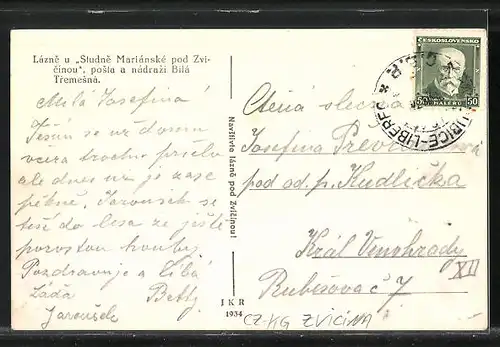 Lázně u „Studně Mariánské pod Zvi-
činou", pošta a nádraží Bílá
Třemešná.
Milá Josefína!
Těším se už domů
včera trochu pršelo
ale dnes už je zase
pěkně. Jaroušek se
těší do lesa že ještě
porostou houby
Pozdravuje a líbá
Láďa Betty
Jaroušek
Navštivte lázně pod Zvičinou!
J K R
1934
ČESKOSLOVENSKO
50 HALÉŘŮ 50
LIBEREC
Ctěná slečna
Josefina
pod od. p. Kudlička
Král Vinohrady
XII
Rubešova č 7
CZ-KG ZVICINA